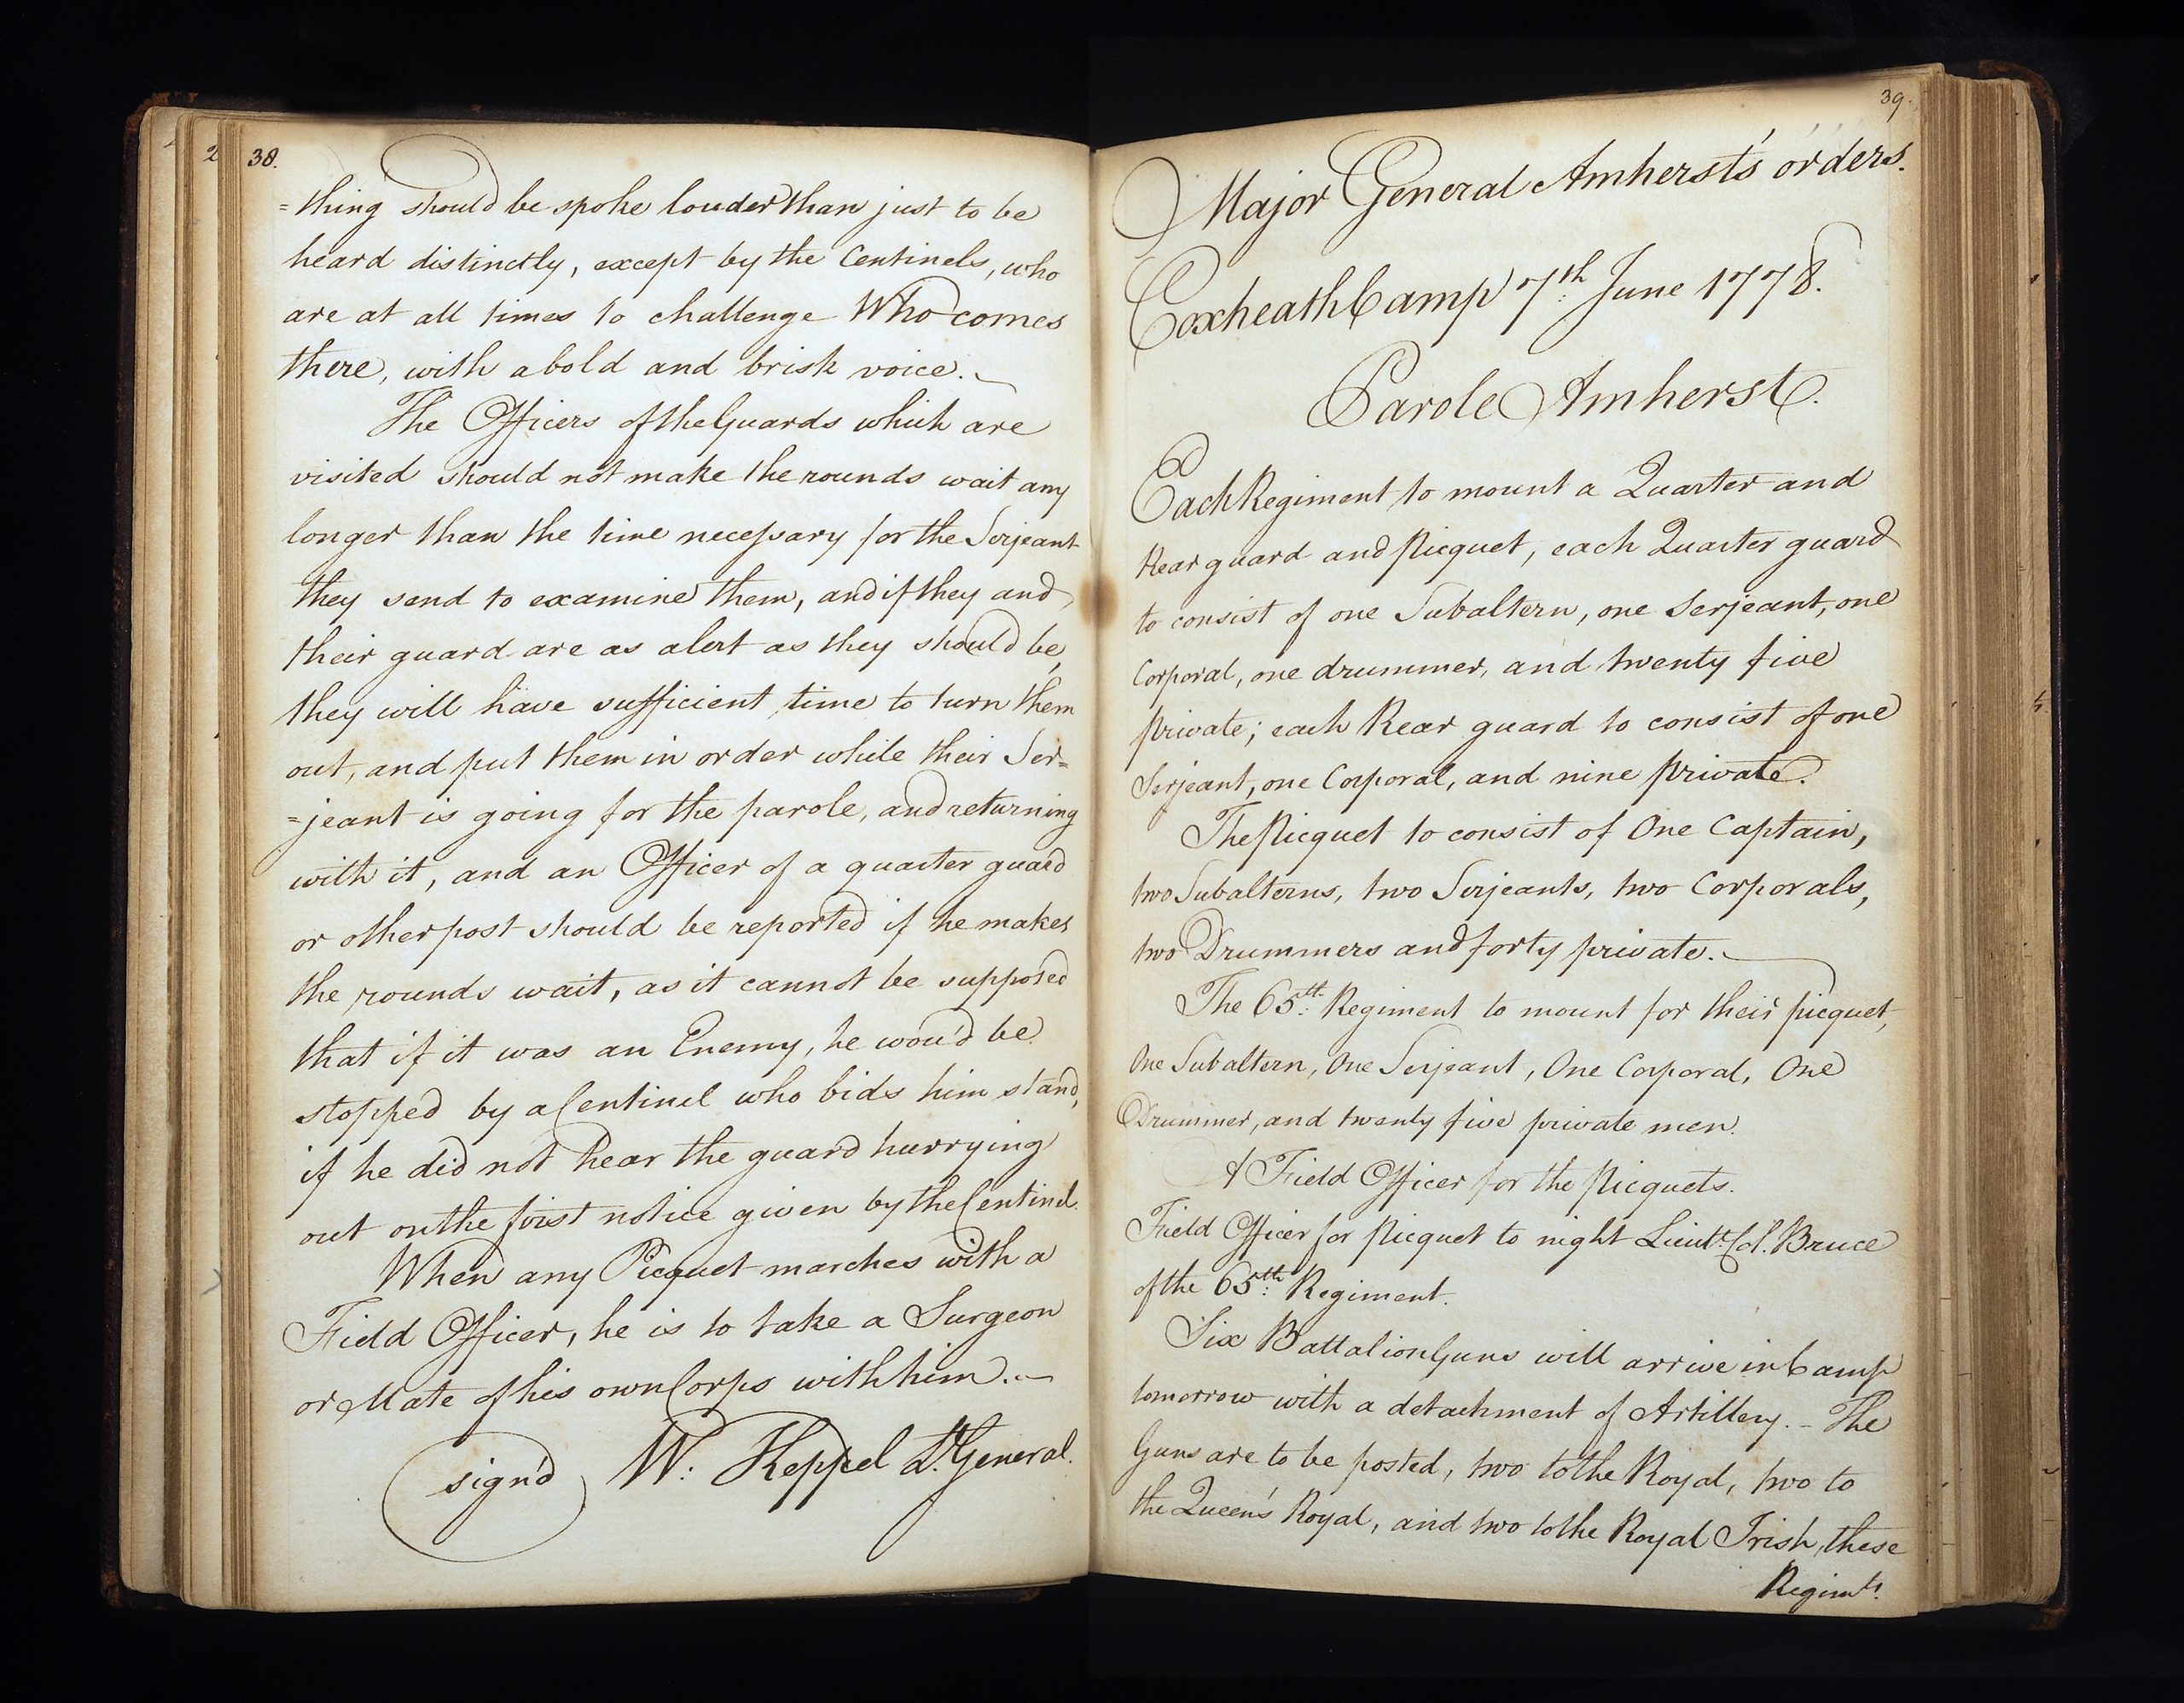 38.
=thing should be spoke louder than just to be
heard distinctly, except by the Centinels, who
are at all times to challenge Who comes
there, with a bold and brisk voice.
The Officers of the Guards which are
visited should not make the rounds wait any
longer than the time necessary for the Serjeant
they send to examine them, and if they and
their guard are as alert as they should be,
they will have sufficient time to turn them
out, and put them in order while their Ser=
=jeant is going for the parole, and returning
with it, and an Officer of a quarter guard
or other post should be reported if he makes
the rounds wait, as it cannot be supposed
that if it was an Enemy, he wou'd be
stopped by a Centinel who bids him stand,
if he did not hear the guard hurrying
out on the first notice given by the Centinel.
When any Picquet marches with a
Field Officer, he is to take a Surgeon
or Mate of his own Corps with him.
sign'd W: Keppel Lt. General.
39.
Major General Amherst's orders.
Coxheath Camp 7th: June 1778.
Parole Amherst.
Each Regiment to mount a Quarter and
Rear guard and Picquet, each Quarter guard
to consist of one Subaltern, one Serjeant, one
Corporal, one drummer, and twenty five
private; each Rear guard to consist of one
Serjeant, one Corporal, and nine private.
The Picquet to consist of One Captain,
two Subalterns, two Serjeants, two Corporals,
two Drummers and forty private.
The 65th: Regiment to mount for their picquet,
One Subaltern, One Serjeant, One Corporal, One
Drummer, and twenty five private men.
A Field Officer for the Picquets.
Field Officer for Picquet to night Lieutt. Col. Bruce
of the 65th: Regiment.
Six Battalion Guns will arrive in Camp
tomorrow with a detachment of Artillery. - The
Guns are to be posted, two to the Royal, two to
the Queen's Royal, and two to the Royal Irish, these
Regimts.